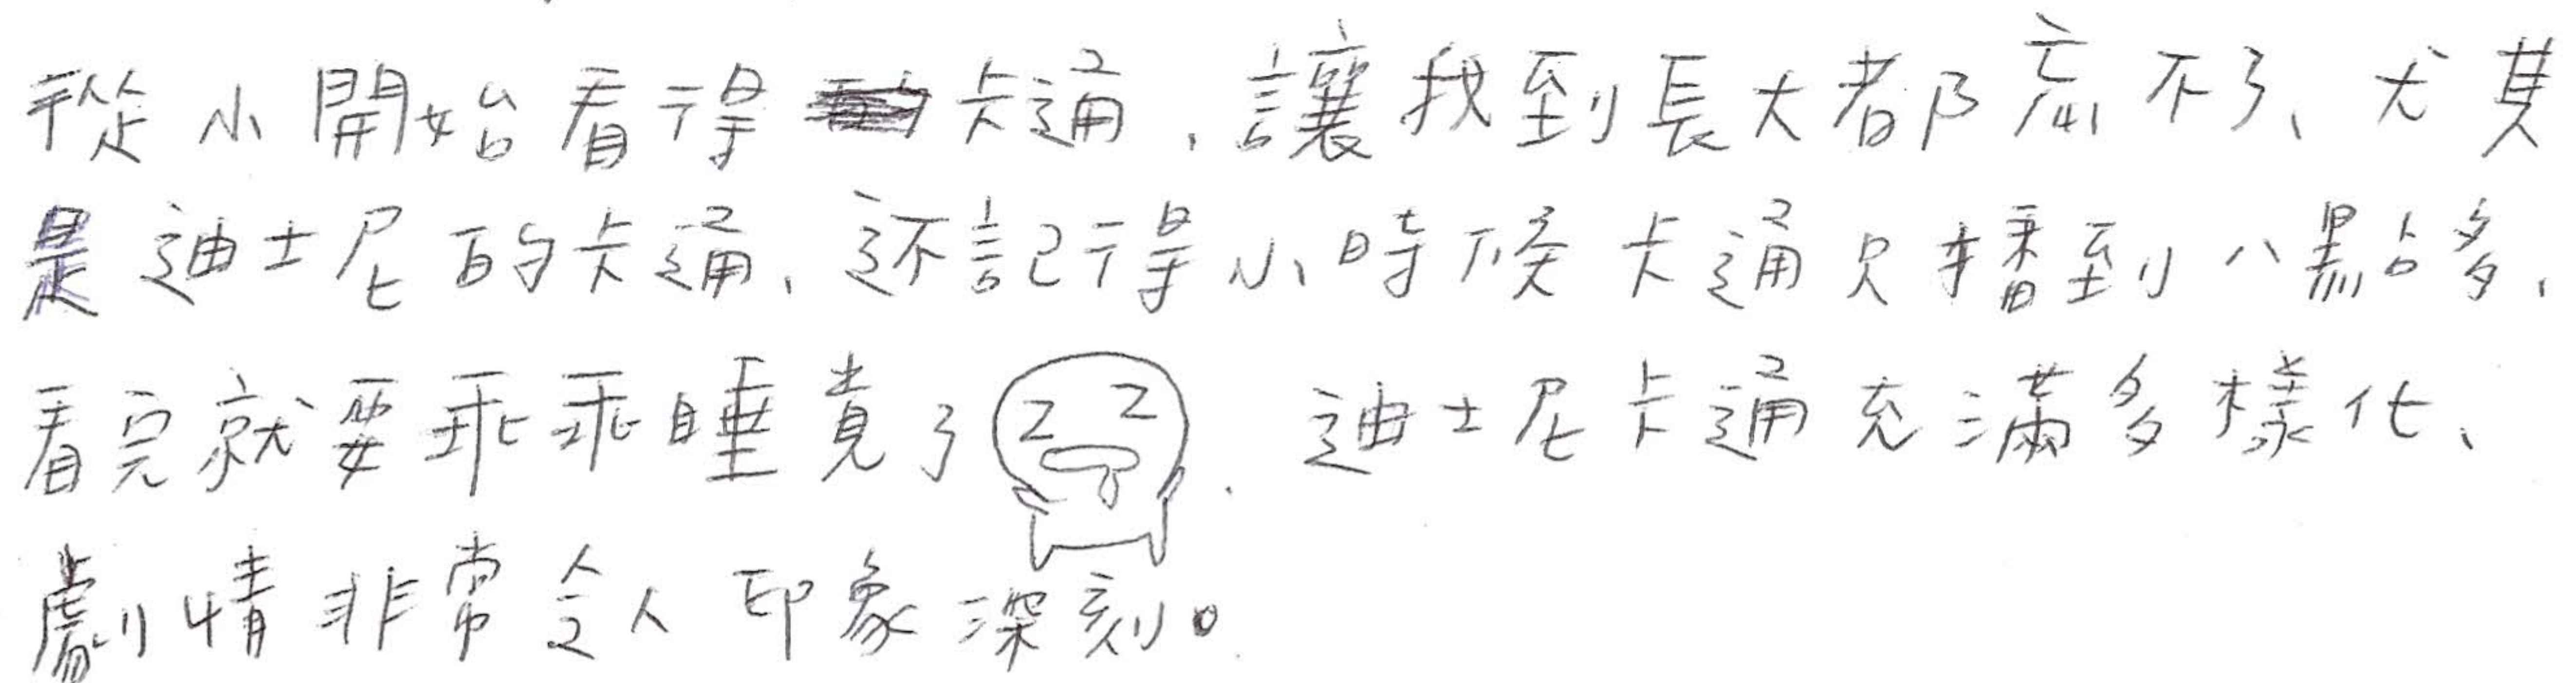 從小開始看得卡通、讓我到長大都忘不了、尤其
是迪士尼的卡通、還記得小時候卡通只播到八點多、
看完就要乖乖睡覺了. 迪士尼卡通充滿多樣化、
劇情非常令人印象深刻。